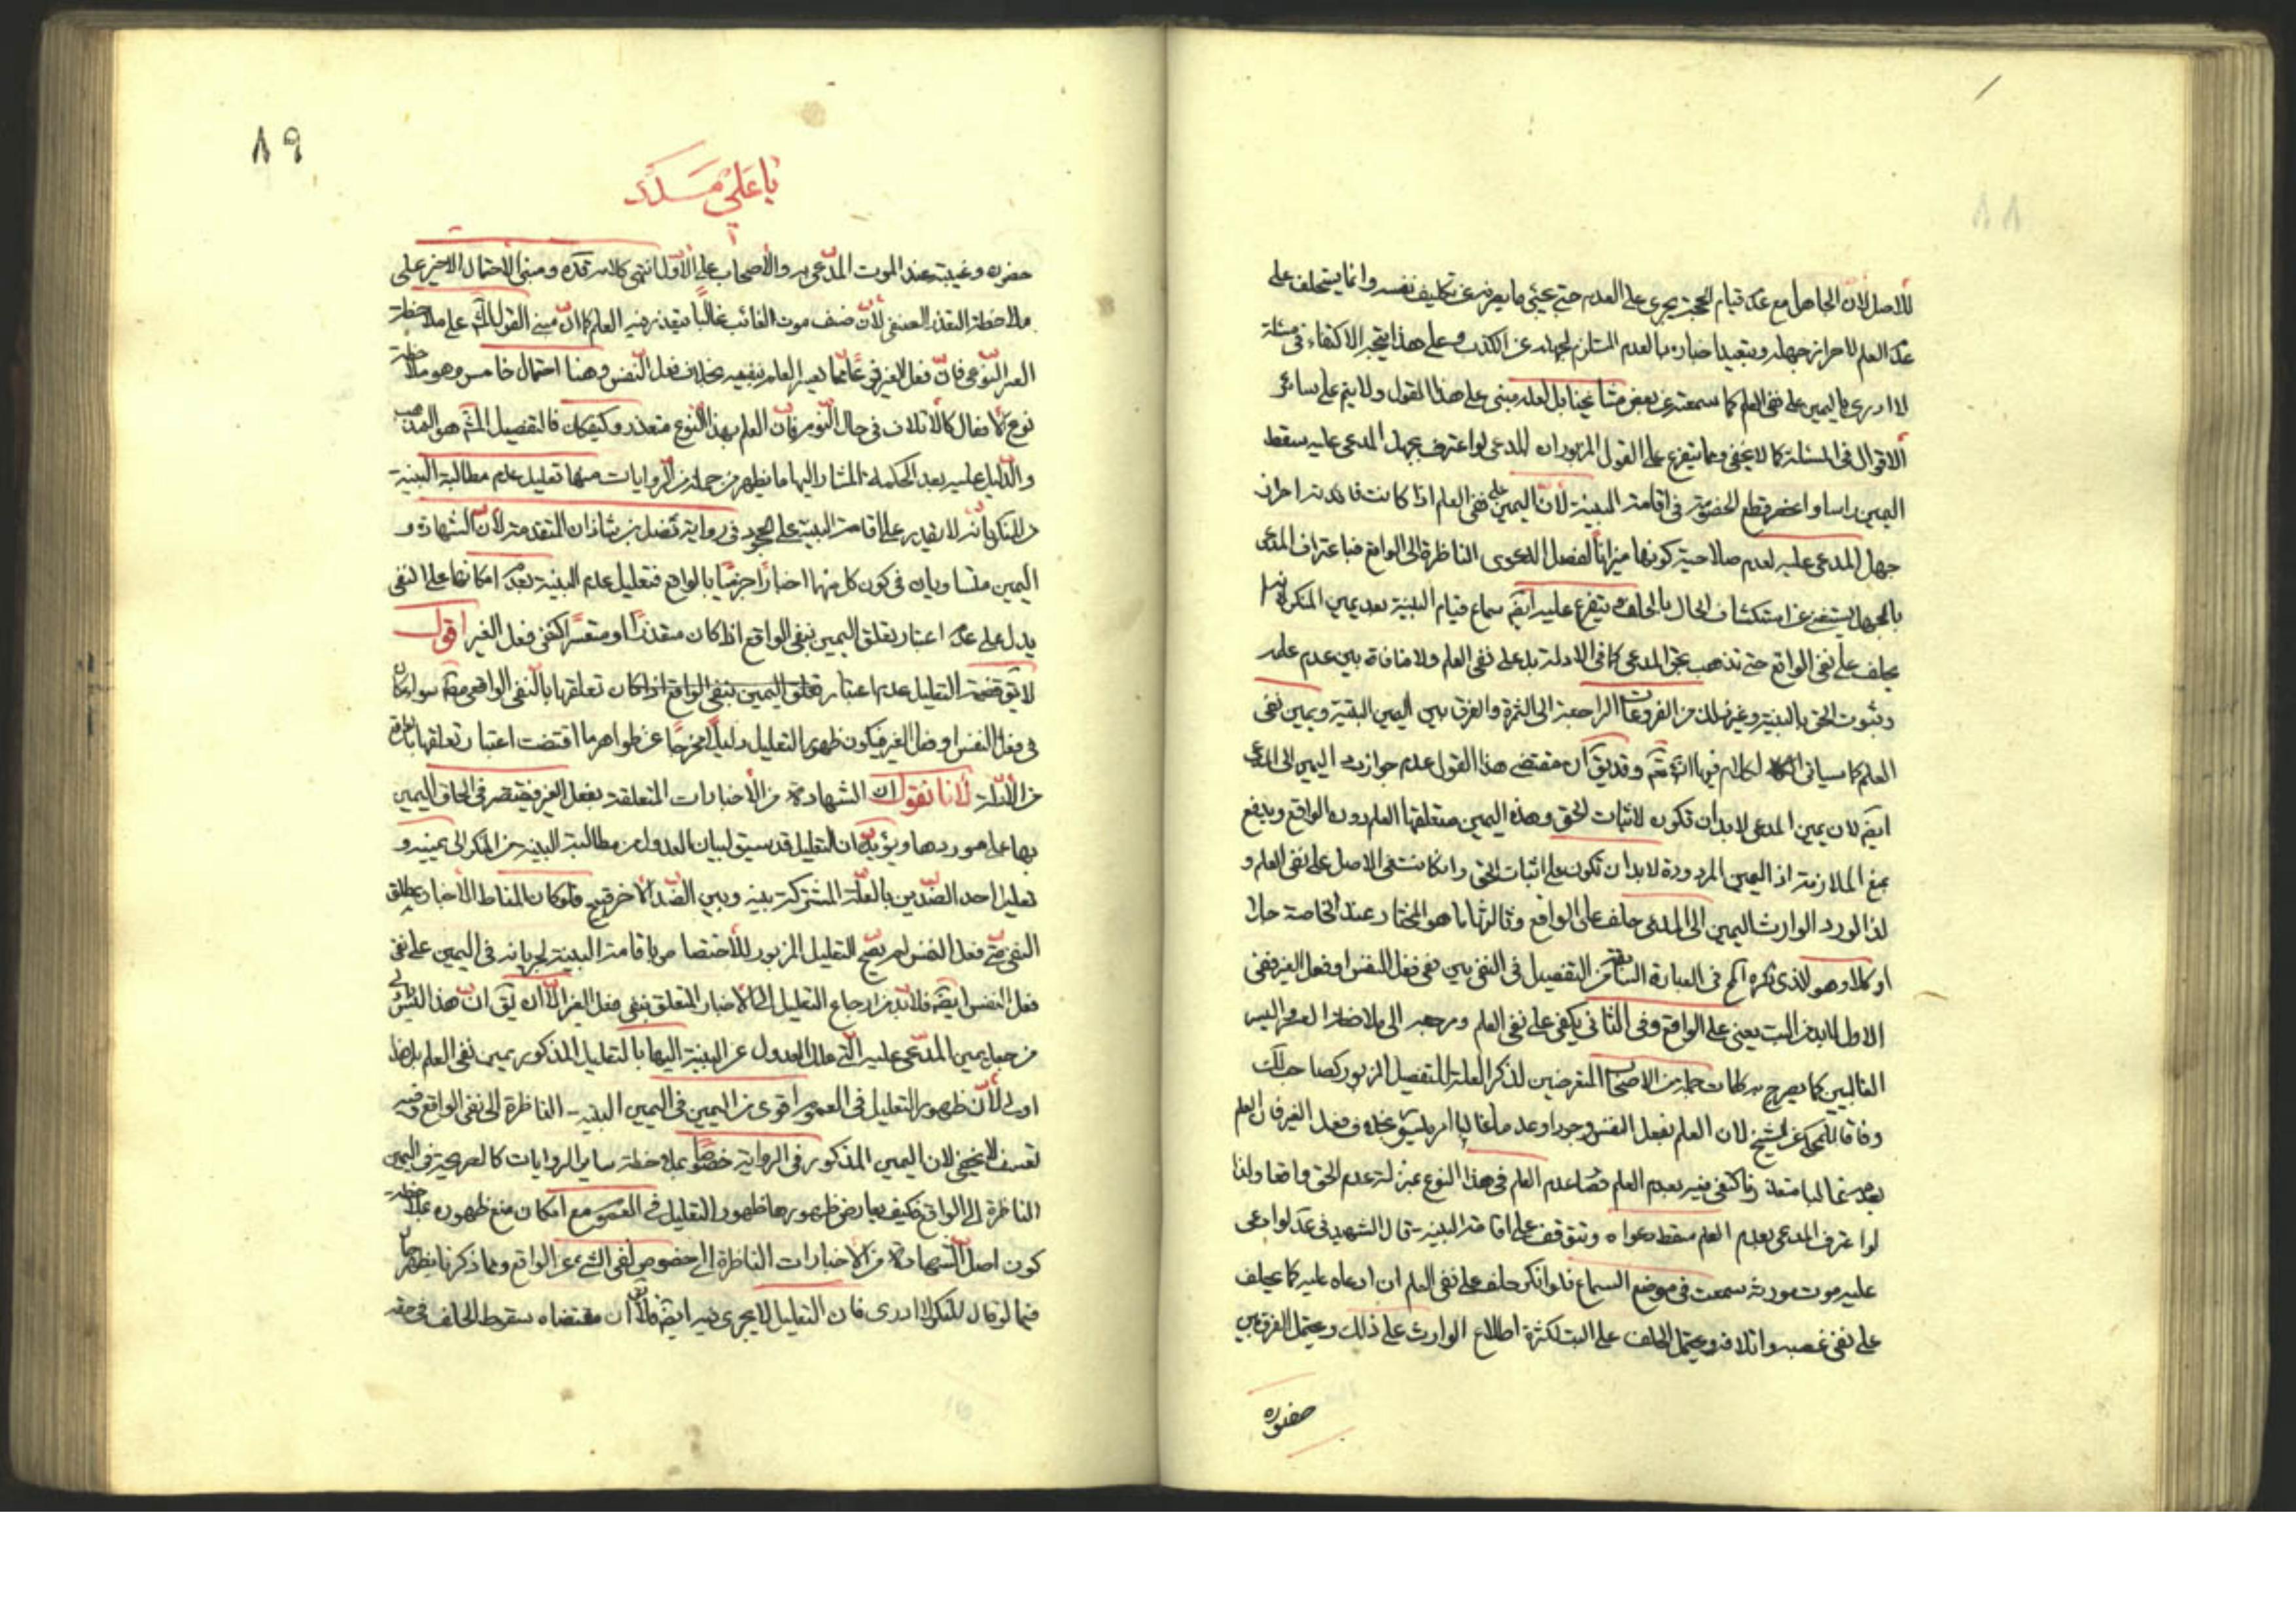 ٨٨
للاصل لان الجاهل مع عدم قيام الحجة يجرى على العدم حتى يجئ ما يصرفه عن تكليف نفسه وانما يستحلف على
عدم العلم لاحراز جهله وبتعبد اخباره بالعدم المستلزم لجهله عن الكذب وعلى هذا يتجه الاكتفاء فى مسئلة
لا ادرى باليمين على نفى العلم كما سمعته عن بعض مشايخنا بل لعله مبنى على هذا القول ولا يتم على سائر
الاقوال فى المسئلة كما لا يخفى ومما يتفرع على القول المزبور ان المدعى لو اعترف بجهل المدعى عليه سقط
اليمين راسا وانحصر قطع الخصومة فى اقامة البينة لان اليمين على نفى العلم اذا كانت فائدته احراز
جهل المدعى عليه لعدم صلاحية كونها ميزانا لفصل الدعوى الناظرة الى الواقع فباعتراف المدعى
بالجهل يستغنى عن استكشاف الحال بالحلف ويتفرع عليه ايضا سماع قيام البينة بعد يمين المنكر
يحلف على نفى الواقع حتى تذهب بحق المدعى كما فى الادلة بل على نفى العلم ولا منافاة بين عدم علمه
وثبوت الحق بالبينة وغير ذلك من الفروعات الراجعة الى الثمرة والفرق بين اليمين البتية ويمين نفى
العلم كما سياتى الكلام فيها انش تعم وقد يق ان مقتضى هذا القول عدم جواز رد اليمين الى المدعى
ايضا لان يمين المدعى لابد ان تكون لاثبات الحق وهذه اليمين متعلقها العلم دون الواقع ويدفع
بمنع الملازمة اذ اليمين المردودة لابد ان تكون على اثبات الحق وان كانت فى الاصل على نفى العلم و
لذا لو رد الوارث اليمين الى المدعى حلف على الواقع وثالثها ما هو المختار عند الخاصة حلا
او كلا وهو الذى ذكره المص فى العبارة السابقة من التفصيل فى النفى بين نفى فعل النفس او فعل الغير ففى
الاول لابد من البت يعنى على الواقع وفى الثانى يكفى على نفى العلم ومرجعه الى ملاحظة العسر واليسر
الغالبين كما يصرح به كلمات جملة من الاصحاب المتعرضين لذكر العلة للتفصيل المزبور كصاحب لك
وفاقا للمحكى عن الشيخ لان العلم بفعل النفس وجودا وعدما غالبا امر ميسور بخلاف فعل الغير فان العلم
بعدمه غالبا متعذر فاكتفى فيه بعدم العلم فصار عدم العلم فى هذا النوع بمنزلة عدم الحق واقعا ولذا
لو اعترف المدعى بعدم العلم سقط دعواه وتتوقف على اقامة البينة قال الشهيد فى عد لو ادعى
عليه موت مورثه سمعت فى موضع السماع فلو انكر حلف على نفى العلم ان ادعاه عليه كما يحلف
على نفى غصبه واتلافه ويحتمل الحلف على البت لكثرة اطلاع الوارث على ذلك ويحتمل الفرق بين
حضوره
٨٩
يا علي مدد
حضوره وغيبته عند الموت المدعى به والاصحاب على الاول انتهى كلامه قده ومبنى الاحتمال الاخير على
ملاحظة التعذر الصنفى لان صنف موت الغائب غالبا متعذر فيه العلم كما ان مبنى القول الثالث على ملاحظة
العسر النوعى فان فعل الغير نوعا مما يعسر العلم بنفيه بخلاف فعل النفس وهنا احتمال خامس وهو ملاحظة
نوع الافعال كالاتلاف فى حال النوم فان العلم بهذا النوع متعذر وكيفكان فالتفصيل المش هو المذهب
والدليل عليه بعد الحكمة المشار اليها ما يظهر من جملة من الروايات منها تعليل عدم مطالبة البينة
من المنكر بانه لا يقدر على اقامة البينة على الجحود فى رواية فضل بن شاذان المتقدمة لان الشهادة و
اليمين متساويان فى كون كل منهما اخبارا جزميا بالواقع فتعليل عدم البينة بعدم امكانها على النفى
يدل على عدم اعتبار تعلق اليمين بنفى الواقع اذا كان متعذرا او متعسرا كنفى فعل الغير اقول
لا يق قضية التعليل عدم اعتبار تعلق اليمين بنفى الواقع اذا كان تعلقها بالنفى الواقعى مطلقا سواء كان
فى فعل النفس او فعل الغير فيكون ظهور التعليل دليلا مخرجا عن ظواهر ما اقتضت اعتبار تعلقها بالواقع
من الادلة لانا نقول ان الشهادة من الاخبارات المتعلقة بفعل الغير فيقتصر فى الحاق اليمين
بها على موردها ويؤيده ان التعليل قد سيق لبيان العدول من مطالبة البينة من المنكر الى يمينه و
تعليل احد الضدين بالعلة المشتركة بينه وبين الضد الاخر قبيح فلو كان المناط الاخبار بمطلق
النفى حتى فعل النفس لم يصح التعليل المزبور للاختصاص باقامة البينة لجريانه فى اليمين على نفى
فعل النفس ايضا فلابد من ارجاع التعليل الى الاخبار المتعلق بنفى فعل الغير الا ان يق ان هذا ليس
من جعل يمين المدعى عليه التى علل العدول عن البينة اليها بالتعليل المذكور يمين نفى العلم
اولى لان ظهور التعليل فى العموم اقوى من اليمين فى اليمين البتية الناظرة الى نفى الواقع وفيه
تعسف لا يخفى لان اليمين المذكور فى الرواية خصوصا بملاحظة سائر الروايات كالصريحة فى اليمين
الناظرة الى الواقع فكيف يعارض ظهورها ظهور التعليل فى العموم مع امكان منع ظهوره بملاحظة
كون اصل الشهادة من الاخبارات الناظرة الى خصوص نفى الشىء عن الواقع ومما ذكرنا يظهر
فيما لو قال المنكر لا ادرى فان التعليل لا يجرى فيه ايضا والا ان مقتضاه سقوط الحلف فى حقه